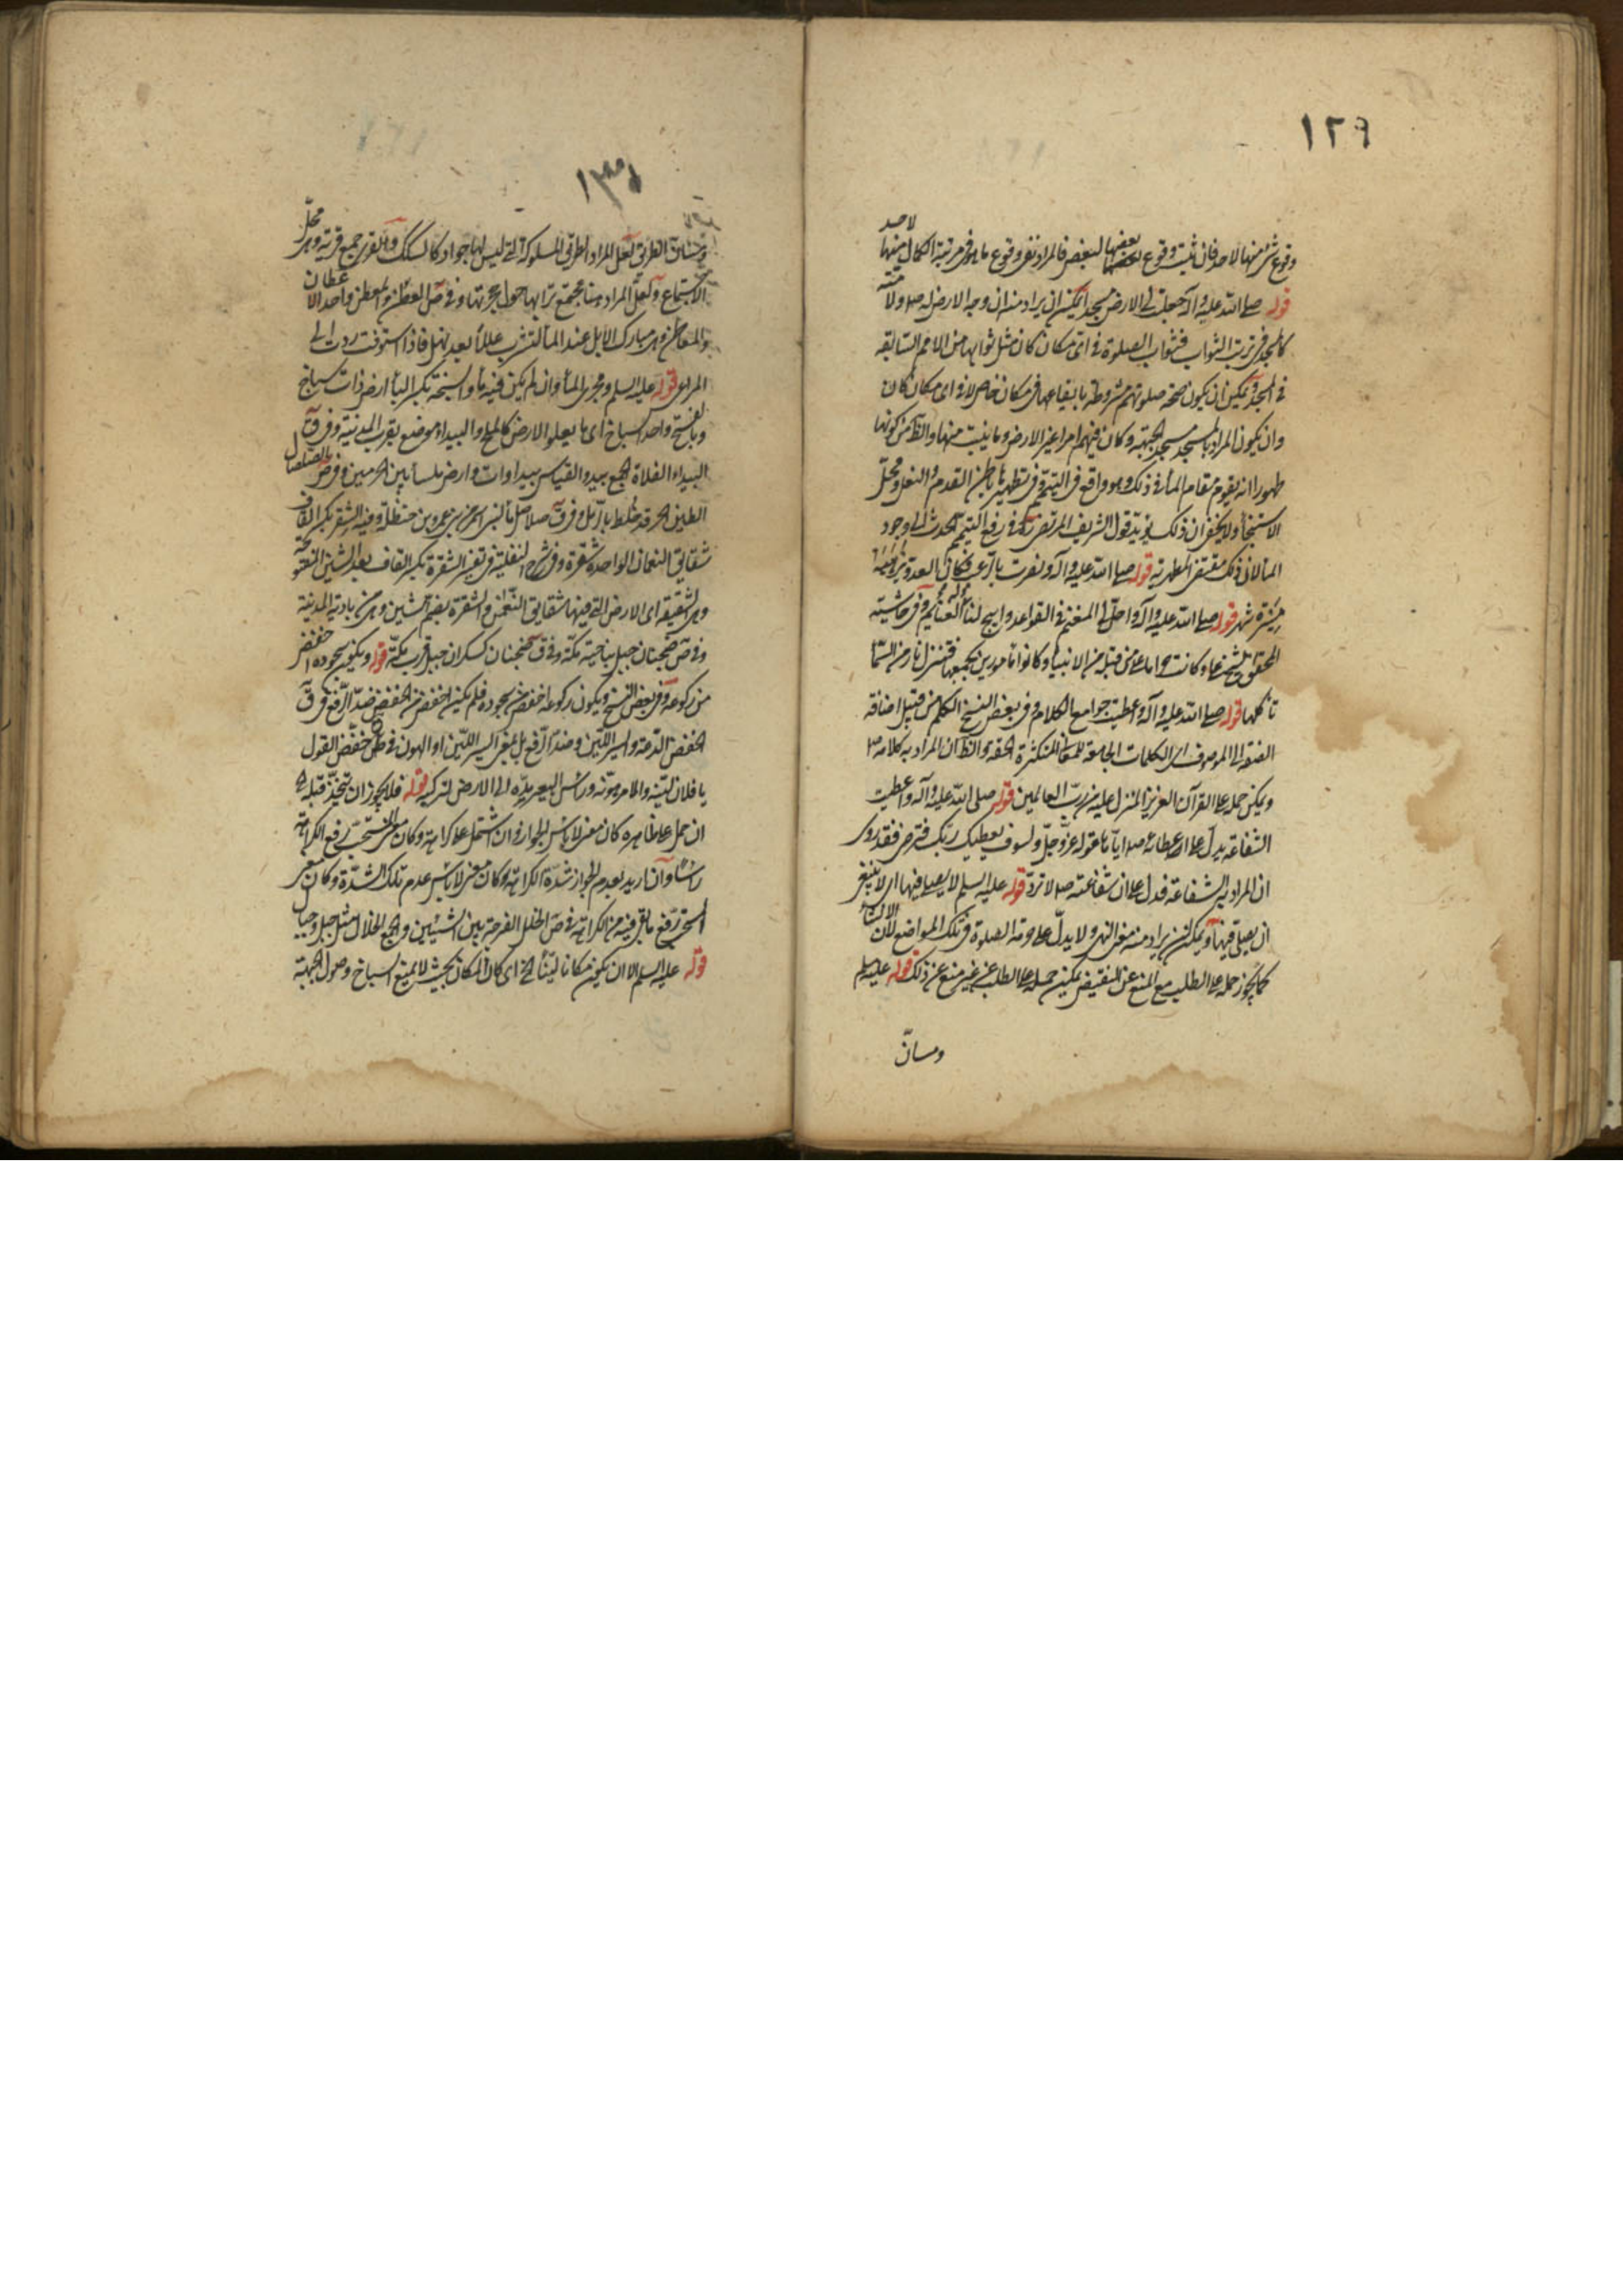 ١٢٩
وقوع شئ منها لاحد فان ثبت وقوع بعضها لبعض فالمراد نفى وقوع ما هو فى مرتبة الكمال منها لاحد
قوله صلى الله عليه وآله جعلت لى الارض مسجدا يمكن ان يراد منه ان وجه الارض له ولامته
كالمسجد فى ترتب الثواب فثواب الصلوة فى اى مكان كان مثل ثوابها من الامم السابقة
فى المسجد ويمكن ان يكون صحة صلوتهم مشروطة بايقاعها فى مكان خاص لا فى اى مكان كان
وان يكون المراد بالمسجد مسجد الجبهة وكان فيهم امرا غير الارض وما ينبت منها والظ من كونها
طهورا انه يقوم مقام الماء فى ذلك وهو واقع فى التيمم وفى تطهير باطن القدم والنعل ومحل
الاستنجاء ولا يخفى ان ذلك يؤيد قول الشريف المرتضى فى رفع التيمم الحدث الى وجود
الماء لان ذلك مقتضى المطهرية قوله صلى الله عليه وآله ونصرت بالرعب فكان العدو
مسيرة شهر قوله صلى الله عليه وآله واحل لى المغنم فى القواعد وابيح لنا الغنايم وفى حاشيته
المحقق الشيخ على وكانت حراما على من قبله من الانبياء وكانوا مأمورين بجمعها فتنزل نار من السماء
تأكلها قوله صلى الله عليه وآله اعطيت جوامع الكلام وفى بعض النسخ الكلم من قبيل اضافة
الصفة الى الموصوف اى الكلمات الجامعة للمعانى المتكثرة الحقة والظ ان المراد به كلامه
ويمكن حمله على القرآن العزيز المنزل عليه من رب العالمين قوله صلى الله عليه وآله واعطيت
الشفاعة يدل على اعطائه اياها قوله عز وجل ولسوف يعطيك ربك فترضى فقد روى
ان المراد به الشفاعة فدل على ان شفاعته لا ترد قوله عليه السلم لا يصلى فيها اى لا ينبغى
ان يصلى فيها ويمكن ان يراد منه معنى النهى ولا يدل على حرمة الصلوة فى تلك المواضع لان الانشاء
كما يجوز حمله على الطلب مع المنع عن النقيض يمكن حمله على الطلب من غير منع عن ذلك قوله عليه السلم
ومسان
١٣٠
ومسان الطرق لعل المراد الطرق المسلوكة التى ليس لها جواد كالسكك والقرى جمع قرية وهى محل
الاجتماع ولعل المراد هنا مجتمع ترابها حول جحرتها وفى ص العطن والمعطن واحد الاعطان
والمعاطن وهى مبارك الابل عند الماء لتشرب عللا بعد نهل فاذا استوفت ردت الى
المراعى قوله عليه السلم ومجرى الماء وان لم يكن فيه ماء والسبخة بكسر الباء ارض ذات سباخ
وبالفتح واحد السباخ اى ما يعلو الارض كالملح والبيداء موضع بقرب المدينة وفى ق
البيداء الفلاة الجمع بيد والقياس بيداوات وارض ملساء بين الحرمين وفى ص الصلصال
الطين الحر قد خلط بالرمل وفى ق صلاصل ماء لبنى اسمر من بنى عمرو بن حنظلة وفيه الشقر بكسر القاف
شقايق النعمان الواحدة شقرة وفى شرح النفلية فى تفسير الشقرة بكسر القاف بعد الشين المفتوحة
وهى الشقيقة اى الارض التى فيها شقايق النعمان والشقرة بضم الشين وهى من بادية المدينة
وفى ص ضجنان جبل بناحية مكة وفى ق ضجنان كسكران جبل قرب مكة قوله ويكون سجوده اخفض
من ركوعه وفى بعض النسخ ويكون ركوعه اخفض من سجوده فلم يكن اخفض من الخفض ضد الرفع وفى ق
الخفض الدعة والسير اللين وضد الرفع بل بمعنى السير اللين او الهون فى ق خفض القول
يا فلان لينه والامر هونه ورأس البعير مده الى الارض لتركبه قوله فلا يجوز ان تتخذ قبلة
ان حمل على ظاهره كان معنى لا باس الجواز وان اشتمل على كراهة وكان معنى المستحب رفع الكراهة
راسا وان اريد بعدم الجواز شدة الكراهة وكان معنى لا باس عدم تلك الشدة وكان معنى
المستحب رفع ما بقى فيه من الكراهة فى ص الخلل الفرجة بين الشيئين والجمع الخلال مثل جبل وجبال
قوله عليه السلم الا ان يكون مكانا لينا الخ اى كان المكان بحيث لا يمنع السباخ وصول الجبهة